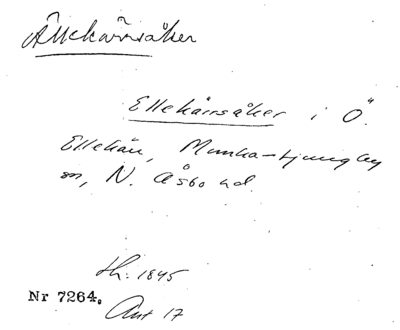 Ällekärrsåker
Ellekärrsåker i Ö.
Ellekärr, Munka-Ljungby
sn, N. Åsbo hd.
Lh. 1845
Nr 7264. Akt 17